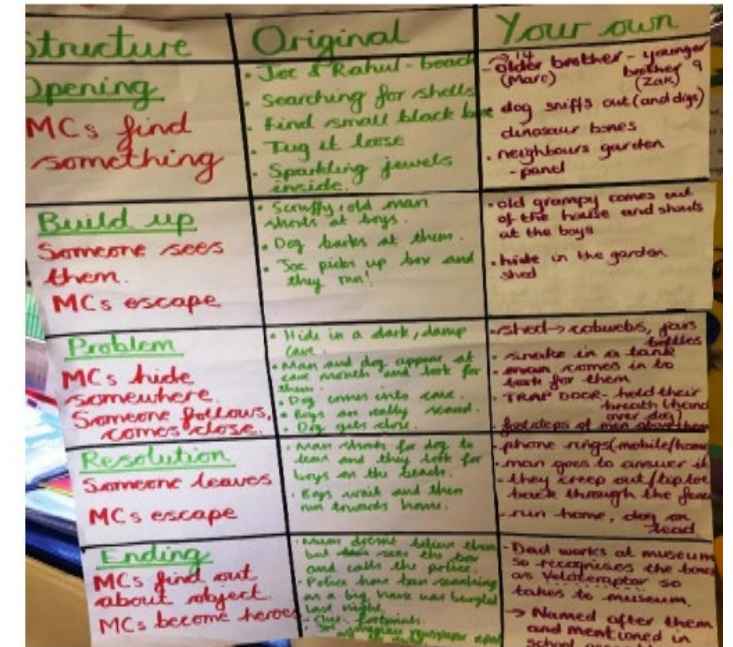 Structure
Original
Your own
Opening
MCs find
something
• Joe & Rahul - beach
• Searching for shells
• Find small black box
• Tug it loose
• Sparkling jewels
inside.
- older brother - younger
14
brother 9
(Marc)
(Zak)
• dog sniffs out (and digs)
dinosaur bones
• neighbours garden
- panel
Build up
Someone sees
them.
MCs escape
• Scruffy, old man
shouts at boys.
• Dog barks at them.
• Joe picks up box and
they run!
• old grampy comes out
of the house and shouts
at the boys
• hide in the garden
shed
Problem
MCs hide
somewhere.
Someone follows,
comes close.
• Hide in a dark, damp
cave.
• Man and dog appear at
cave mouth and look for
them.
• Dog comes into cave.
• Boys are really scared.
• Dog gets close.
• shed → cobwebs, jars
bottles
• snake in a tank
• man comes in to
look for them
• TRAP DOOR - hold their
breath (hand
over dog)
footsteps of man above them
Resolution
Someone leaves
MCs escape
• Man shouts for dog to
leave and they look for
boys on the beach.
• Boys wait and then
run towards home.
- phone rings (mobile/home
- man goes to answer it
- they creep out/tiptoe
back through the fence
- run home, dog on
lead
Ending
MCs find out
about object.
MCs become heroes
• Mum doesn't believe them
but sees the box
and calls the police.
• Police have been searching
as a big house was burgled
last night.
• Clue: footprints.
newspaper
- Dad works at museum
so recognises the bones
as Velociraptor so
takes to museum.
→ Named after them
and mentioned in
school